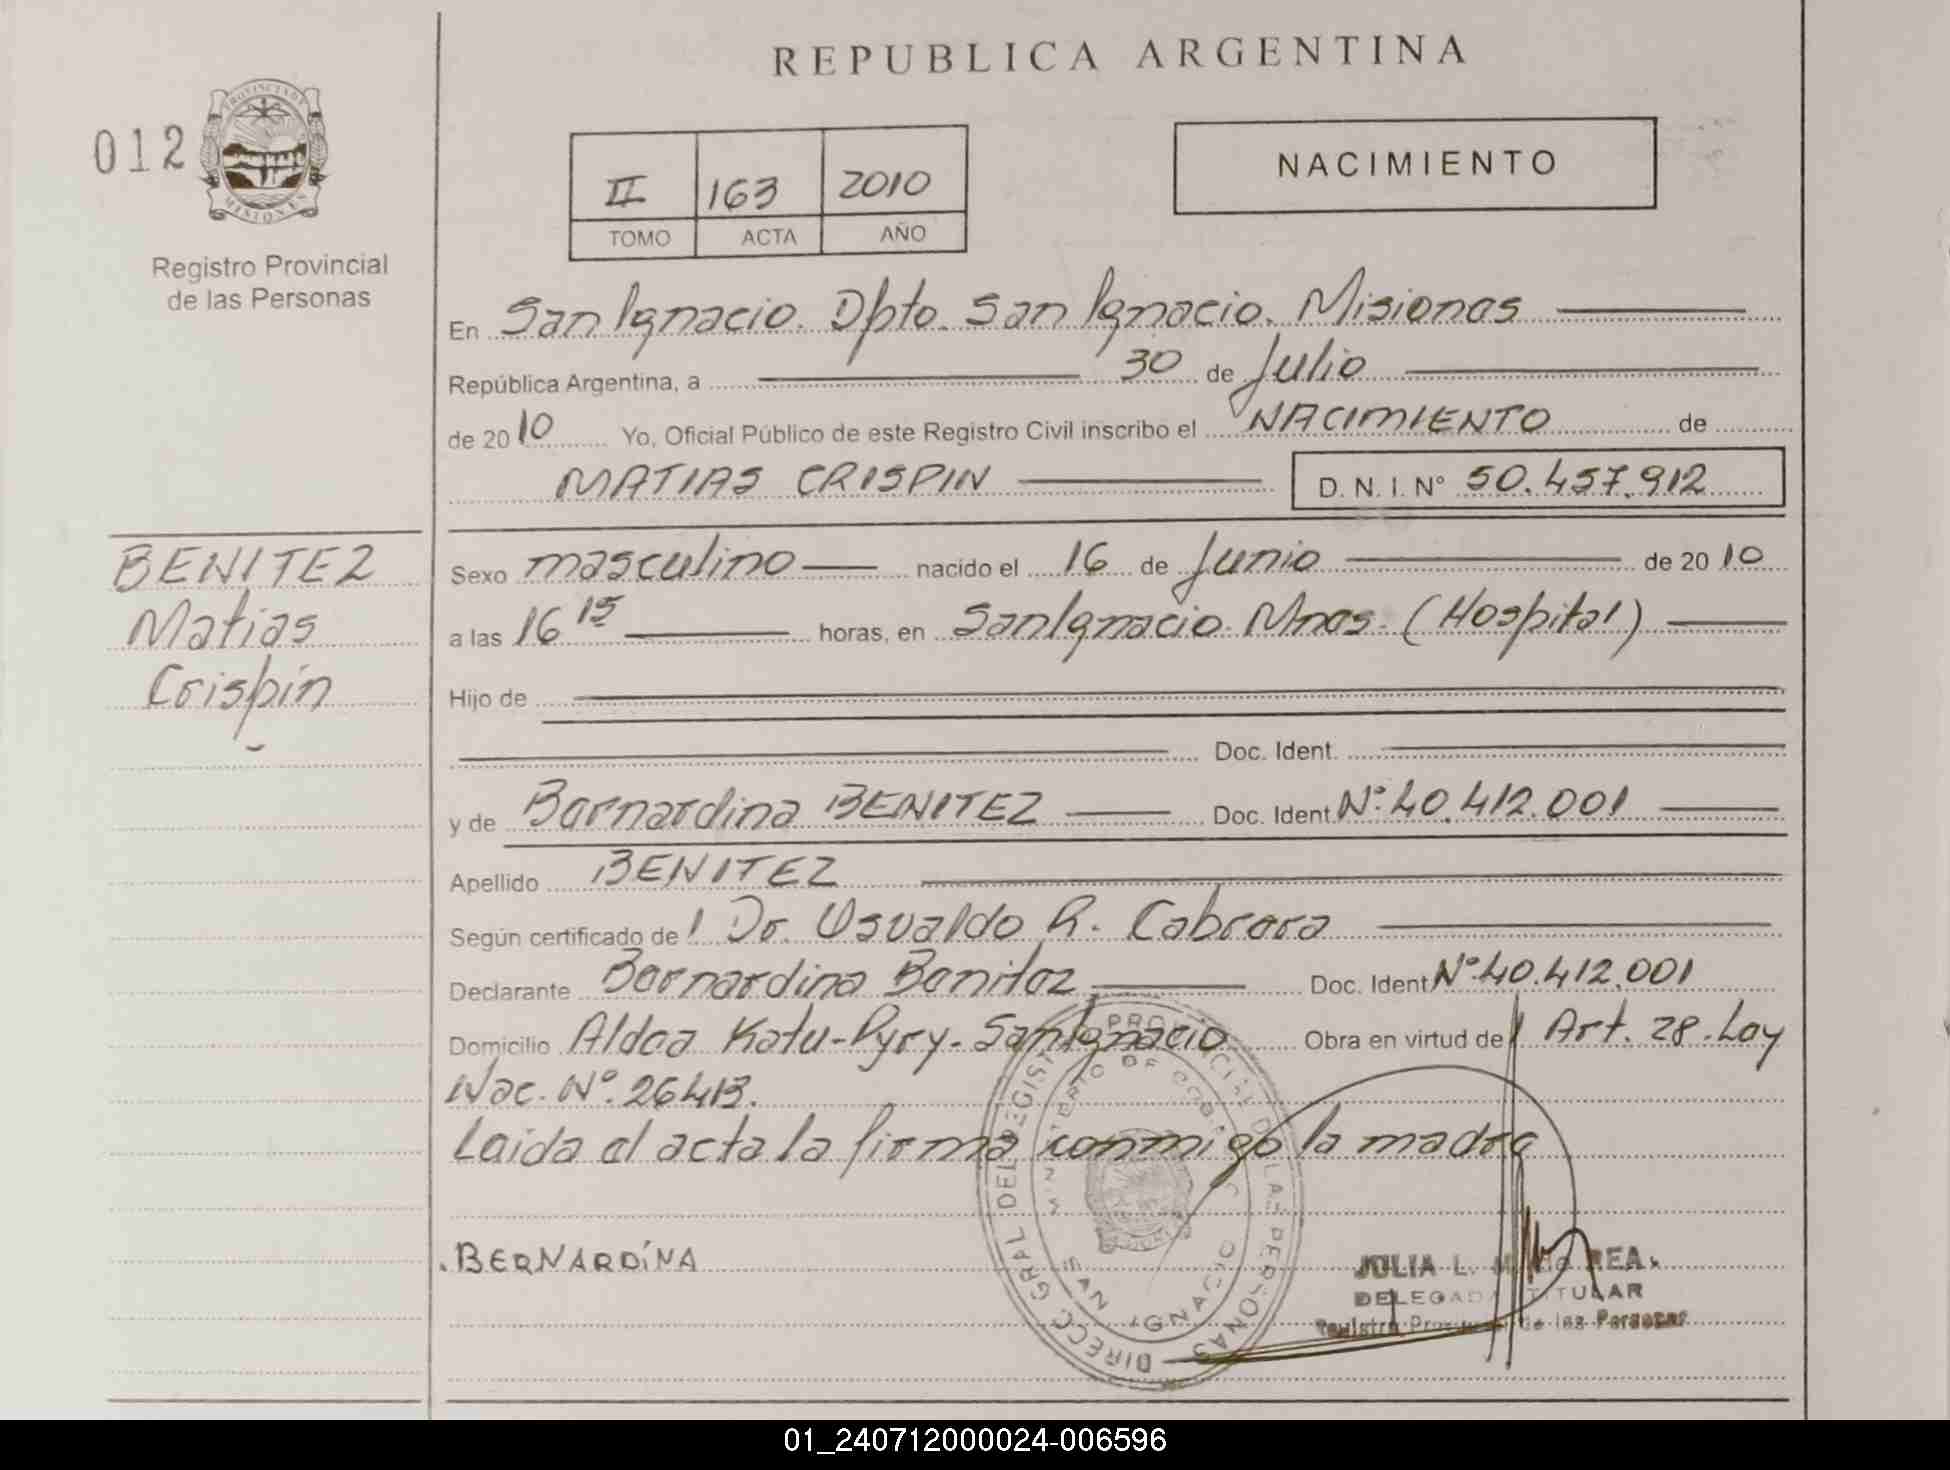 REPUBLICA ARGENTINA
012
PROVINCIA DE
MISIONES
Registro Provincial
de las Personas
II 163 2010
TOMO ACTA AÑO
NACIMIENTO
En San Ignacio. Dpto. San Ignacio. Misiones
República Argentina, a 30 de Julio
de 2010 Yo, Oficial Público de este Registro Civil inscribo el NACIMIENTO de
MATIAS CRISPIN D. N. I. N° 50.457.912
BENITEZ
Matias
Crispín
Sexo masculino nacido el 16 de Junio de 2010
a las 16 15 horas, en San Ignacio. Mnes. (Hospital)
Hijo de
Doc. Ident.
y de Bernardina BENITEZ Doc. Ident. N°:40.412.001
Apellido BENITEZ
Según certificado de l Dr. Osvaldo R. Cabrera
Declarante Bernardina Benitez Doc. Ident N°:40.412.001
Domicilio Aldea Katu-Pyry-San Ignacio Obra en virtud del Art. 28.Ley
Nac. N°. 26413.
Leida el acta la firma conmigo la madre
.BERNARDÍNA
DIRECC GRAL DEL REGIST PROVINCIAL DE LAS PERSONAS
MINISTERIO DE GOBIERNO
SAN IGNACIO
JULIA L.
DELEGADA TITULAR
Registro Provincial de las Personas
01_240712000024-006596